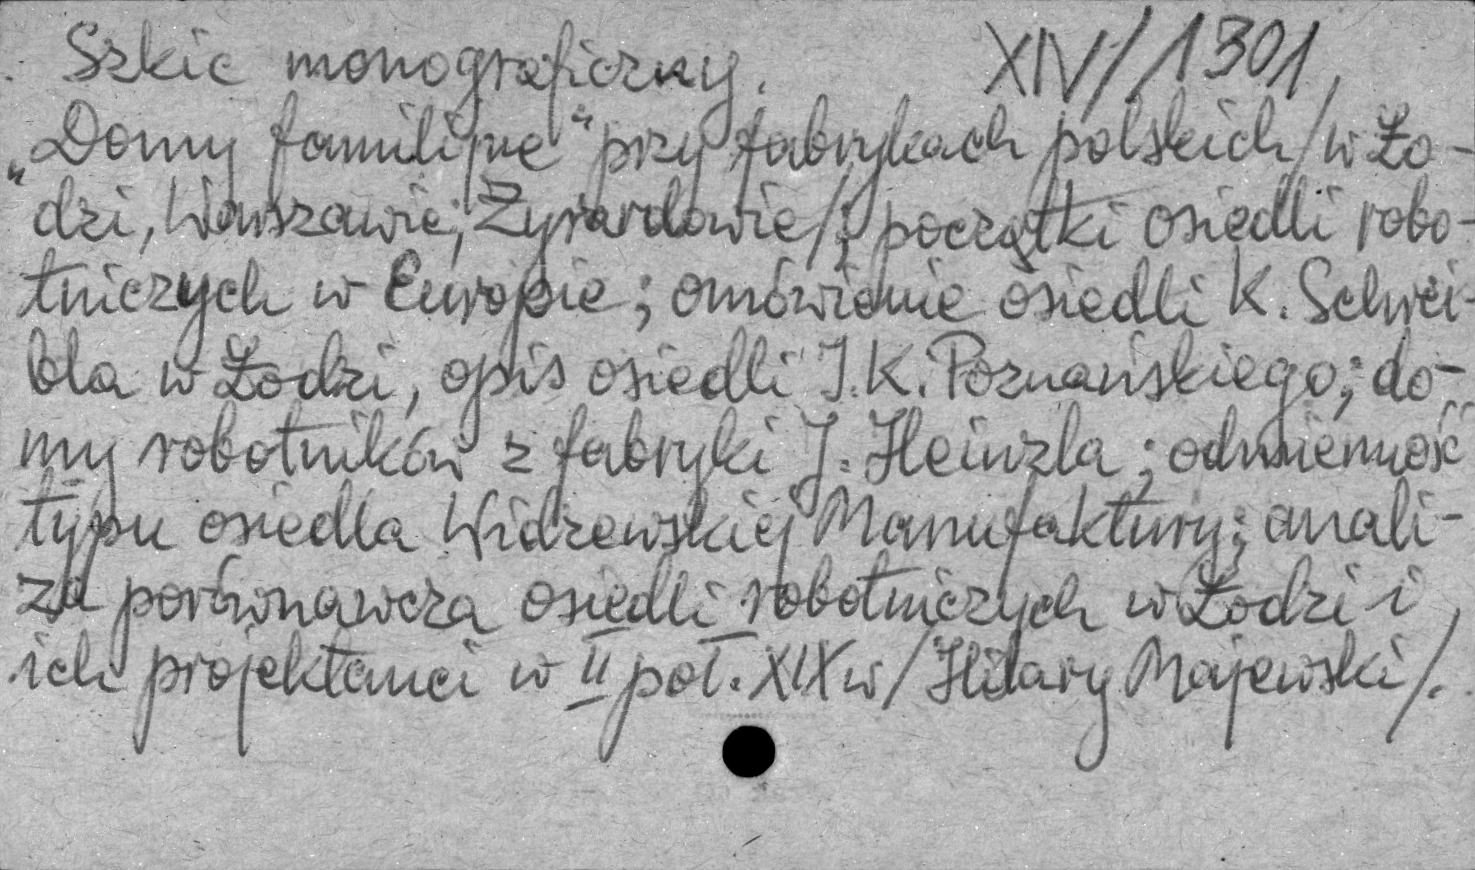 Szkic monograficzny. XIV/1301,
„Domy familijne" przy fabrykach polskich /w Ło-
dzi, Warszawie, Żyrardowie/; początki osiedli robo-
tniczych w Europie; omówienie osiedli K. Schei-
bla w Łodzi, opis osiedli I.K. Poznańskiego; do-
my robotników z fabryki J. Heinzla; odmienność
typu osiedla Widzewskiej Manufaktury; anali-
za porównawcza osiedli robotniczych w Łodzi i
ich projektanci w II poł. XIX w /Hilary Majewski/.